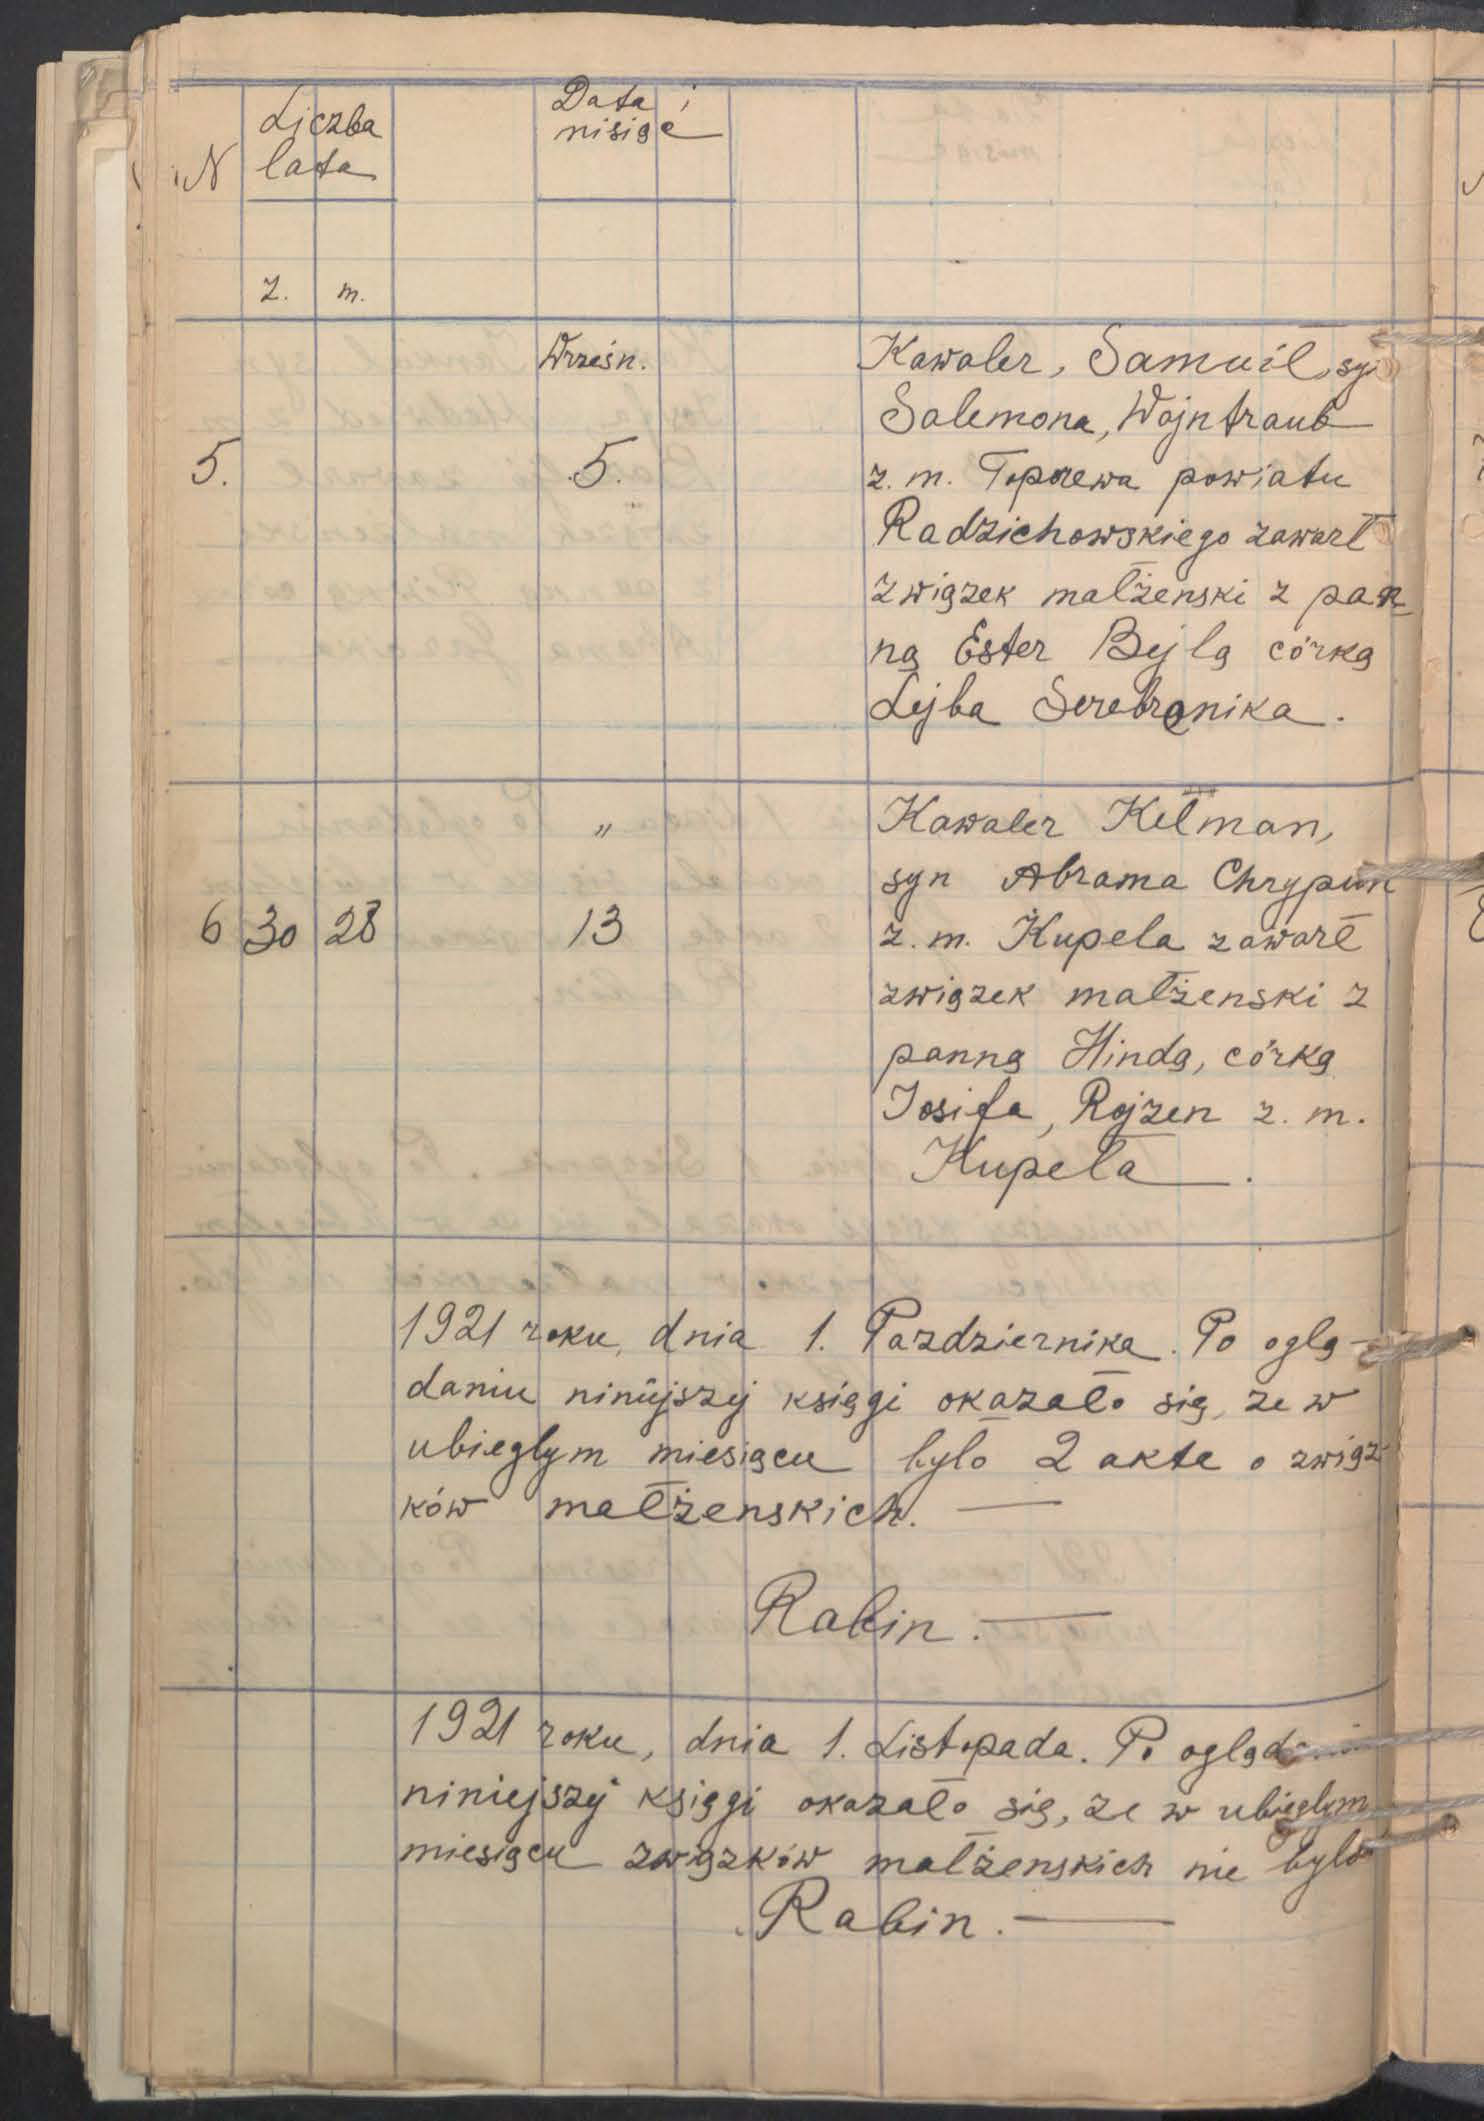 N
Liczba
lata
Data i
misiąc
z. m.
Wrześn.
5.
5.
Kawaler, Samuil, syn
Salemona, Wajntraub
z. m. Toporewa powiatu
Radzichowskiego zawarł
związek małżenski z pan
ną Ester Bejlą córką
Lejba Serebrenika.
6 30 28
"
13
Kawaler Kelman,
syn Abrama Chrypun
z. m. Kupela zawarł
związek małżenski z
panną Hindą, córką
Iosifa, Rojzen z. m.
Kupela.
1921 roku, dnia 1. Pazdziernika. Po oglą-
daniu niniejszej księgi okazało się, ze w
ubieglym miesiącu bylo 2 akta o związ-
ków małżenskich.
Rabin.
1921 roku, dnia 1. Listopada. Po oglądaniu
niniejszej księgi okazało się, ze w ubieglym
miesiącu związków małżenskich nie bylo
Rabin.